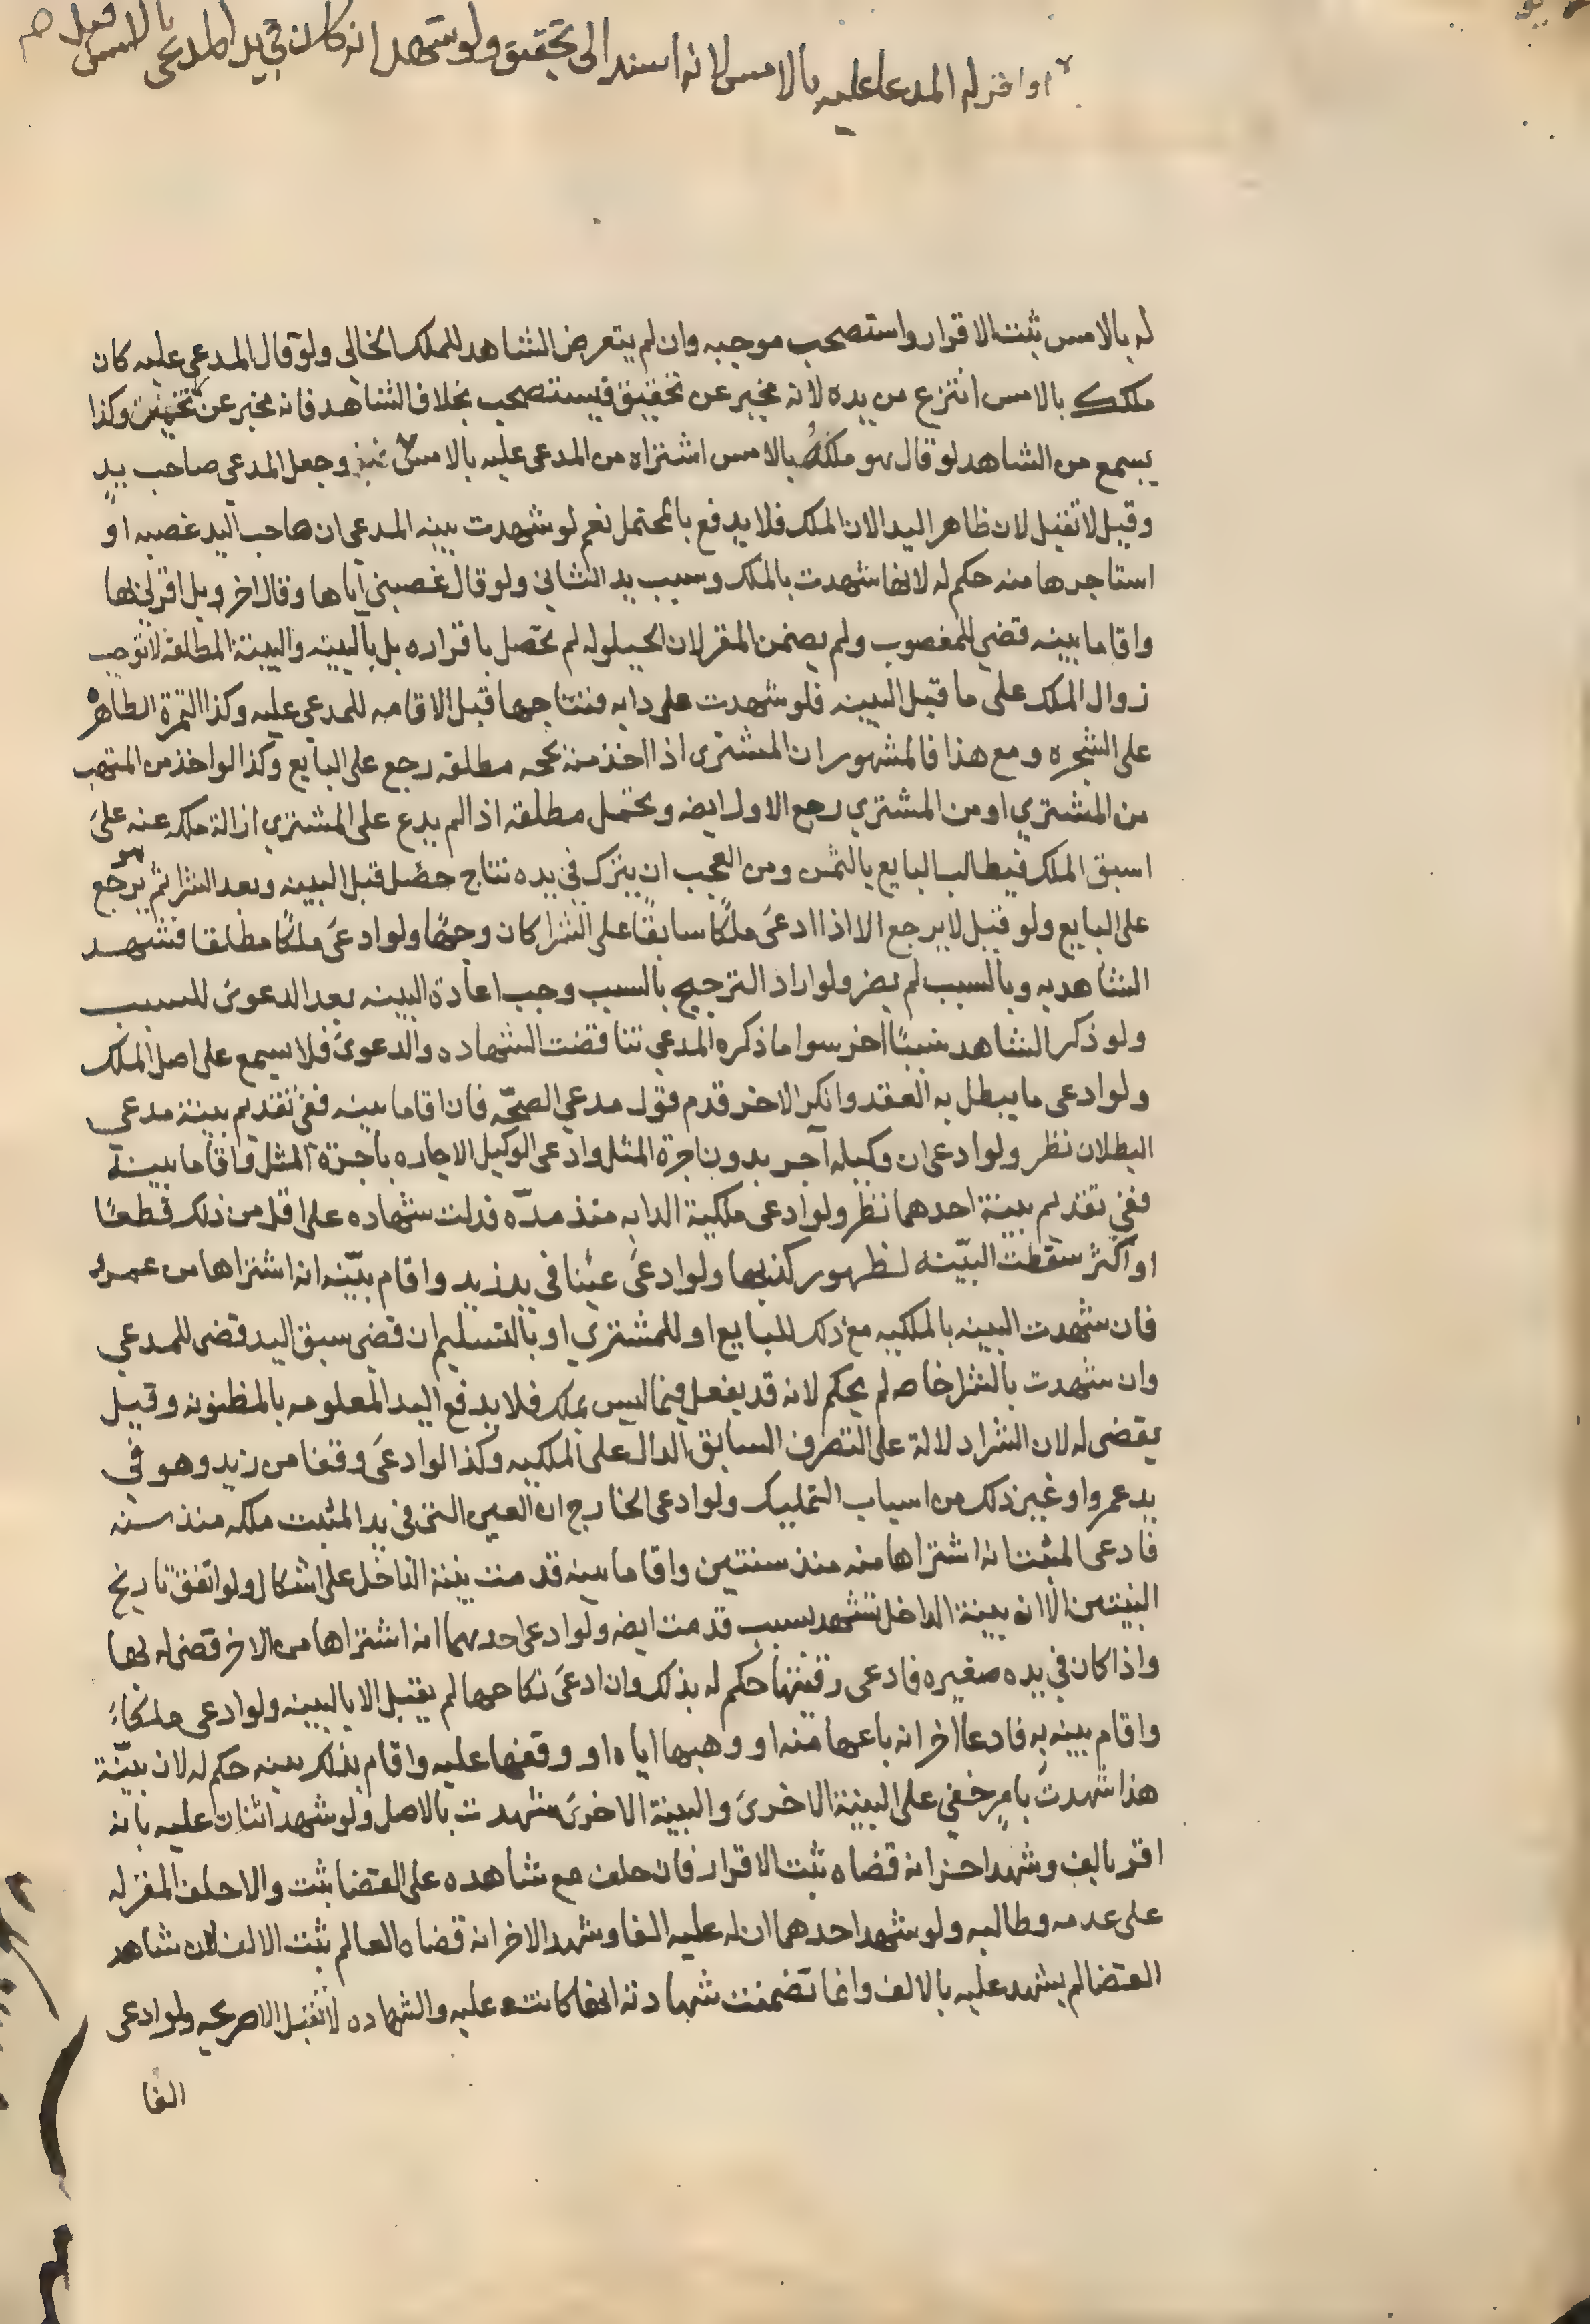 او اقر له المدعا عليه بالامس لانه اسند الى تحقيق ولو شهد انه كان في يد المدعى بالامس قبل صح
له بالامس ثبت الاقرار واستصحب موجبه وان لم يتعرض الشاهد للملك الحالي ولو قال المدعي عليه كان
ملكك بالامس انتزع من يده لانه مخبر عن تحقيق فيستصحب بخلاف الشاهد فانه مخبر عن تخمين وكذا
يسمع من الشاهد لو قال هو ملكه بالامس اشتراه من المدعى عليه بالامس وجعل المدعى صاحب يدٍ
وقيل لا تقبل لان ظاهر اليد الان الملك فلا يدفع بالمحتمل نعم لو شهدت بينه المدعى ان صاحب اليد غصبه او
استاجرها منه حكم له لانها شهدت بالملك وسبب يد الثاني ولو قال غصبني اياها وقال اخر بل اقر لي بها
واقاما بينه قضي للمغصوب ولم يضمن المقر لان الحيلوله لم تحصل باقراره بل بالبينه والبينة المطلقه لا توجب
زوال الملك على ما قبل البينه فلو شهدت على دابه فنتاجها قبل الاقامه للمدعى عليه وكذا الثمرة الظاهره
على الشجره ومع هذا فالمشهور ان المشترى اذا اخذ منه بحجه مطلقه رجع على البايع وكذا لو اخذ من المتهب
من المشتري او من المشتري رجع الاول ايضه ويحتمل مطلقه اذا لم يدع على المشتري ازالة ملكه عنه على
اسبق الملك فيطالب البايع بالثمن ومن العجب ان يترك في يده نتاج حصل قبل البينه وبعد الشرا ثم هو يرجع
على البايع ولو قيل لا يرجع الا اذا ادعىَ ملكًا سابقًا على الشرا كان وجهًا ولو ادعىَ ملكًا مطلقا فشهد
الشاهد به وبالسبب لم يضر ولو اراد الترجيح بالسبب وجب اعادة البينه بعد الدعوىَ للسبب
ولو ذكر الشاهد سببًا اخر سوا ما ذكره المدعي تناقضت الشهاده والدعوىَ فلا يسمع على اصل الملك
ولو ادعى ما يبطل به العقد وانكر الاخر قدم قول مدعي الصحّه فان اقاما بينه ففى تقديم بينة مدعي
البطلان نظر ولو ادعى ان وكيله آجر بدون اجرة المثل وادعى الوكيل الاجاره باجرة المثل واقاما بينة
ففي تقديم بينة احدهما نظر ولو ادعى ملكية الدابه منذ مدّه فدلت شهاده على اقل من ذلك قطعًا
او اكثر سقطت البيّنه لظهور كذبها ولو ادعىَ عينا في يد زيد واقام بيّنه انه اشتراها من عمرو
فان شهدت البينه بالملكيه مع ذلك للبايع او للمشتري او بالتسليم ان قضى سبق اليد قضى للمدعي
وان شهدت بالشرا خاصه لم يحكم لانه قد يفعل فيما ليس بملك فلا يدفع اليد المعلومه بالمظنونه وقيل
يقضى له لان الشرا دلالة على التصرف السابق الدال على الملكيه وكذا لو ادعىَ وقفا من زيد وهو في
يد عمرو او غير ذلك من اسباب التمليك ولو ادعى الخارج ان العين التى في يد المثبت ملكه منذ سنه
فادعى المثبت انه اشتراها منه منذ سنتين واقاما بينه قدمت بينة الداخل على اشكال ولو اتفق تاريخ
البينتين الا ان بينة الداخل تشهد بسبب قدمت ايضه ولو ادعى احدهما انه اشتراها من الاخر قضى له بها
واذا كان في يده صغيره فادعى رقيتها حكم له بذلك وان ادعىَ نكاحها لم يقبل الا بالبينه ولو ادعى ملكا
واقام بينه به فادعا اخر انه باعها منه او وهبها اياه او وقفها عليه واقام بذلك بينه حكم له لان بيّنة
هذا شهدت بامرٍ خفي على البينة الاخرىَ والبينة الاخرىَ شهدت بالاصل ولو شهد اثنان عليه بانه
اقر بالف وشهد اخر انه قضاه ثبت الاقرار فان حلف مع شاهده على القضا ثبت والا حلف المقر له
على عدمه وطالبه ولو شهد احدهما ان له عليه الفا وشهد الاخر انه قضاه العالم ثبت الالف لان شاهد
القضا لم يشهد عليه بالالف وانما تضمنت شهادته انها كانت عليه والشهاده لا تقبل الا صريحه ولو ادعى
الفا